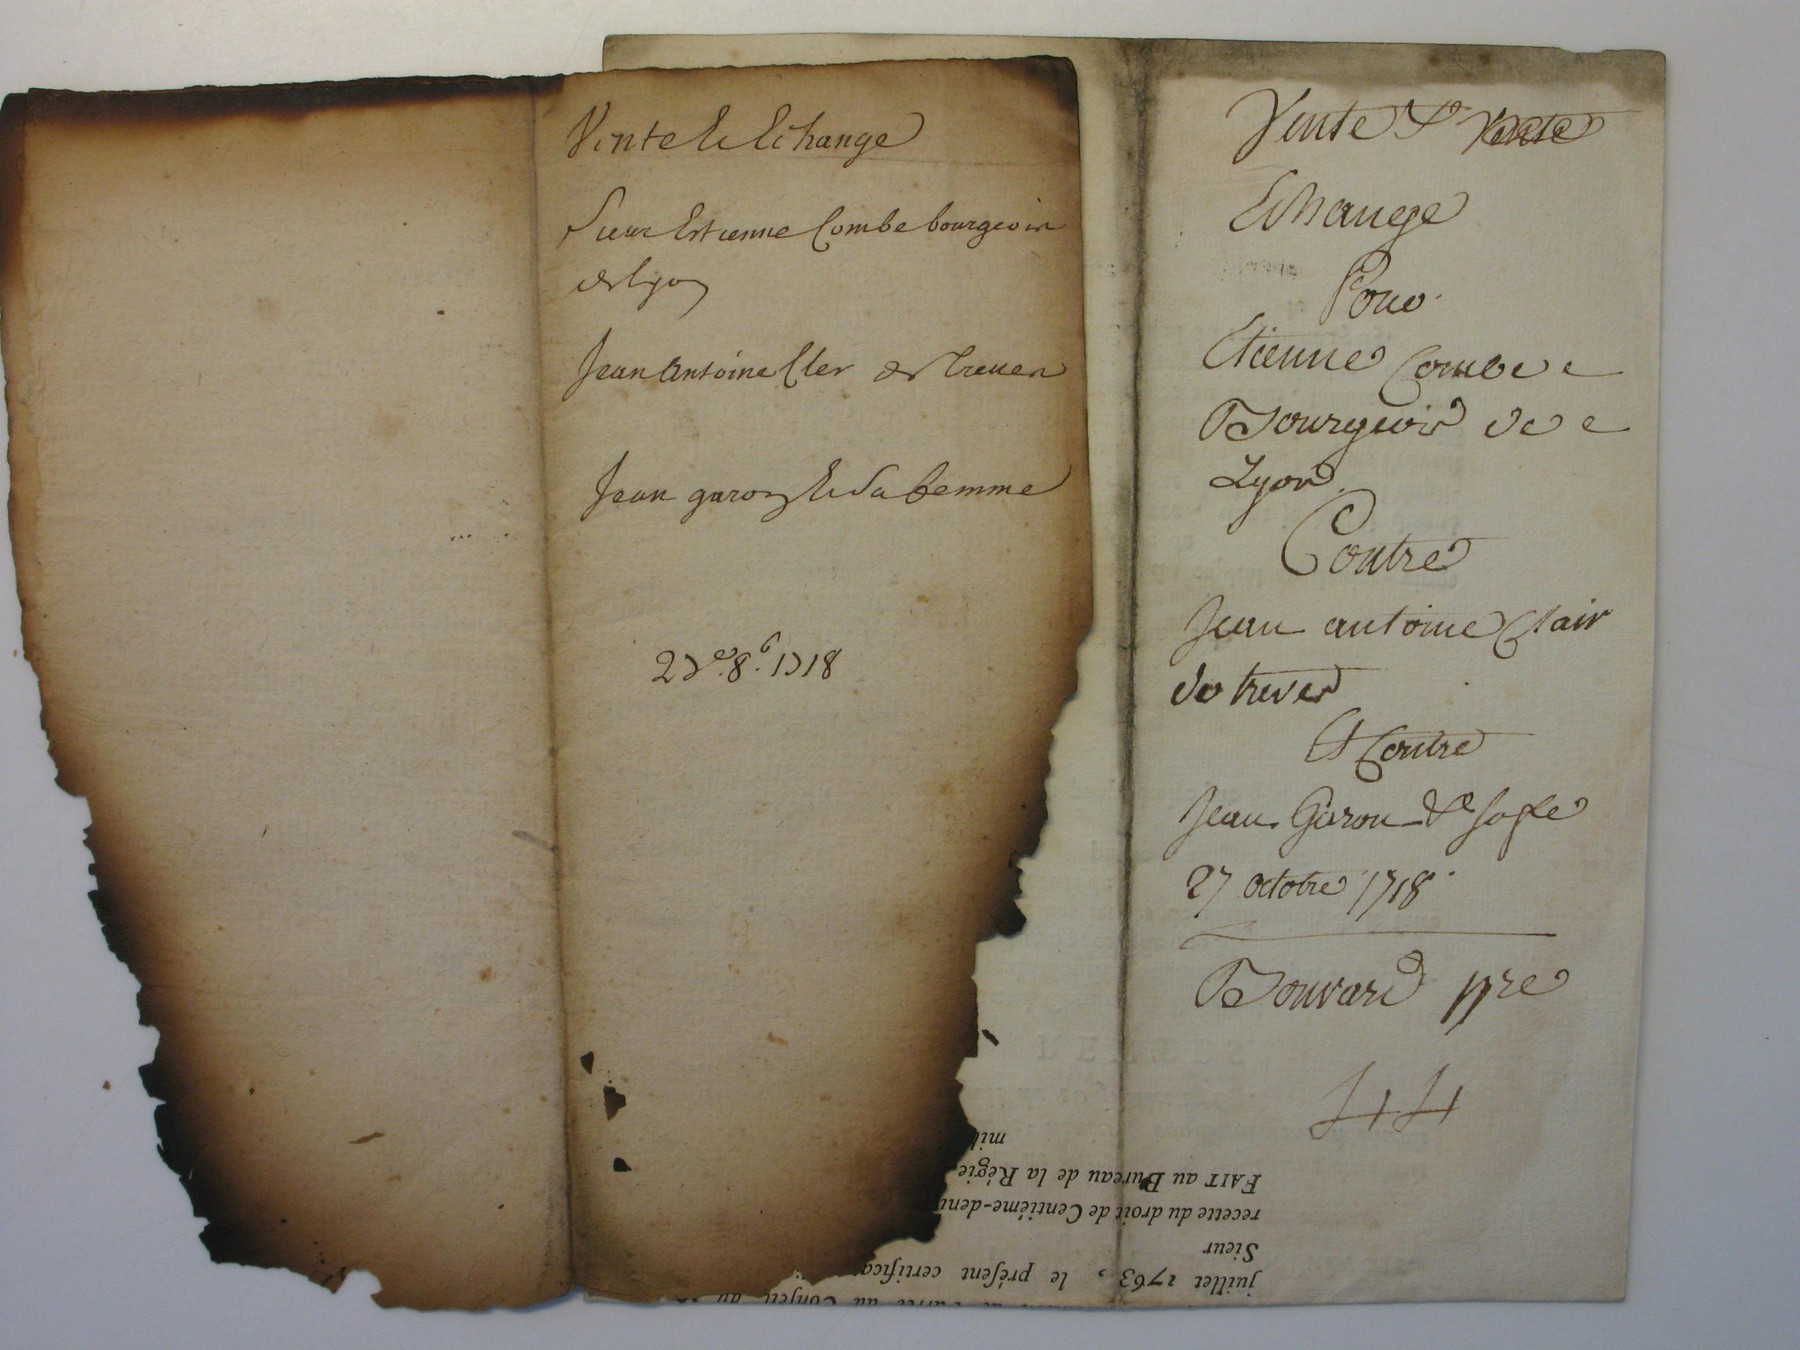 Vente Et Echange
Sieur Estienne Combe bourgeois
de lyon
Jean Antoine Cler de Treves
Jean garon Et Sa femme
27e. 8b. 1718
Vente &
Echange
Pour
Etienne Combe
Bourgeois de
Lyon
Contre
Jean antoine Clair
de treves
Et Contre
Jean Garon & sa fe
27 octobre 1718
Bouvard ppre
44
mil
FAIT au Bureau de la Régie
recette du droit de Centième-deni
Sieur
juillet 1763, le préſent certifica